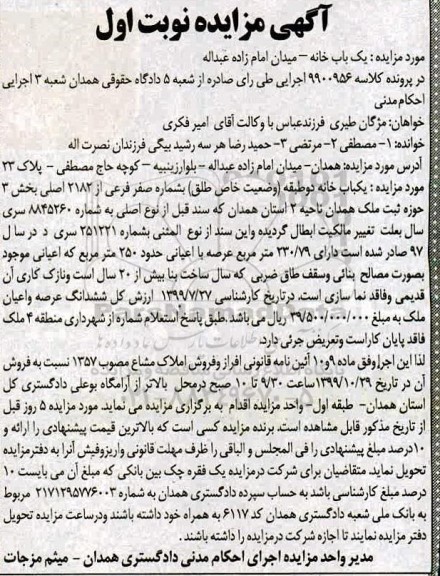 آگهی مزایده نوبت اول
مورد مزایده : یک باب خانه – میدان امام زاده عبداله
در پرونده کلاسه ۹۹۰۰۹۵۶ اجرایی طی رای صادره از شعبه ۵ دادگاه حقوقی همدان شعبه ۳ اجرایی
احکام مدنی
خواهان: مژگان طیری فرزند عباس با وکالت آقای امیر فکری
خوانده: ۱- مصطفی ۲- مرتضی ۳- حمید رضا هر سه رشید بیگی فرزندان نصرت اله
آدرس مورد مزایده: همدان– میدان امام زاده عبداله – بلوار زینبیه – کوچه حاج مصطفی – پلاک ۲۳
مورد مزایده : یکباب خانه دوطبقه (وضعیت خاص طلق) بشماره صفر فرعی از ۲۱۸۲ اصلی بخش ۳
حوزه ثبت ملک همدان ناحیه ۲ استان همدان که سند قبل از نوع اصلی به شماره ۸۸۴۵۲۶۰ سری
سال بعلت تغییر مالکیت ابطال گردیده واین سند از نوع المثنی بشماره ۲۵۱۲۲۱ سری د در سال
۹۷ صادر شده است دارای ۲۳۰/۷۹ متر مربع عرصه با اعیانی حدود ۲۵۰ متر مربع که اعیانی موجود
بصورت مصالح بنائی وسقف طاق ضربی که سال ساخت بنا بیش از ۲۰ سال است ونازک کاری آن
قدیمی وفاقد نما سازی است. درتاریخ کارشناسی ۱۳۹۹/۷/۲۷ ارزش کل ششدانگ عرصه واعیان
ملک به مبلغ ۳۹/۵۰۰/۰۰۰/۰۰۰ ریال می باشد .طبق پاسخ استعلام شماره از شهرداری منطقه ۴ ملک
فاقد پایان کاراست وتعریض جرئی دارد.
لذا این اجرا وفق ماده ۹و۱۰ آئین نامه قانونی افراز وفروش املاک مشاع مصوب ۱۳۵۷ نسبت به فروش
آن در تاریخ ۱۳۹۹/۱۰/۲۹ ساعت ۹/۳۰ تا ۱۰ صبح درمحل بالاتر از آرامگاه بوعلی دادگستری کل
استان همدان– طبقه اول– واحد مزایده اقدام به برگزاری مزایده می نماید. مورد مزایده ۵ روز قبل
از تاریخ مذکور قابل مشاهده است. برنده مزایده کسی است که بالاترین قیمت پیشنهادی را ارائه و
۱۰درصد مبلغ پیشنهادی را فی المجلس و الباقی را ظرف مهلت قانونی واریزوفیش آنرا به دفترمزایده
تحویل نماید. متقاضیان برای شرکت درمزایده یک فقره چک بین بانکی که مبلغ آن می بایست ۱۰
درصد مبلغ کارشناسی باشد به حساب سپرده دادگستری همدان به شماره ۲۱۷۱۲۹۵۷۷۶۰۰۳ مربوط
به بانک ملی شعبه دادگستری همدان کد ۶۱۱۷ به همراه خود داشته باشند ودرساعت مزایده تحویل
دفتر مزایده نمایند تا اجازه شرکت درمزایده را داشته باشند.
مدیر واحد مزایده اجرای احکام مدنی دادگستری همدان – میثم مزجات